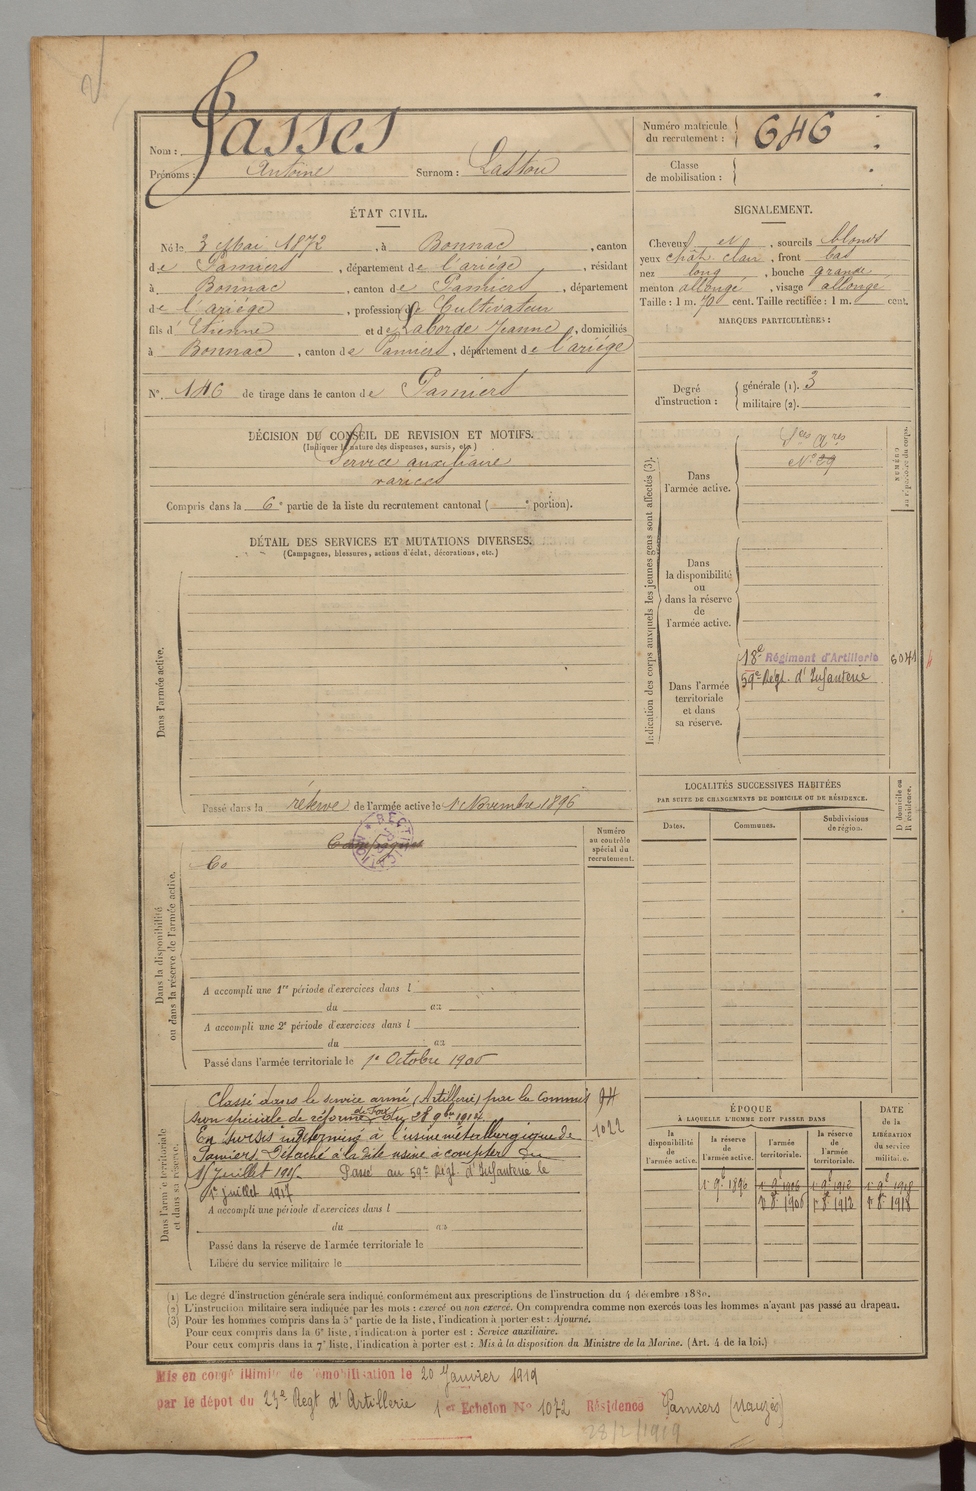 Nom : Jasses
Prénoms : Antoine Surnom : Lastou
Numéro matricule
du recrutement : 646
Classe
de mobilisation :
ÉTAT CIVIL.
Né le 3 Mai 1872, à Bonnac, canton
de Pamiers, département de l'ariége, résidant
à Bonnac, canton de Pamiers, département
de l'ariége, profession de Cultivateur
fils d'Etienne et de Laborde Jeanne, domiciliés
à Bonnac, canton de Pamiers, département de l'ariége
N°. 146 de tirage dans le canton de Pamiers
SIGNALEMENT.
Cheveux et, sourcils blonds
yeux chat. clair, front bas
nez long, bouche grande
menton allongé, visage allongé
Taille : 1 m. 70 cent. Taille rectifiée : 1 m. cent.
MARQUES PARTICULIÈRES :
Degré
d'instruction :
générale (1). 3
militaire (2).
DÉCISION DU CONSEIL DE REVISION ET MOTIFS.
(Indiquer la nature des dispenses, sursis, etc.)
Service auxiliaire
varices
Compris dans la 6e partie de la liste du recrutement cantonal ( e portion).
DÉTAIL DES SERVICES ET MUTATIONS DIVERSES.
(Campagnes, blessures, actions d'éclat, décorations, etc.)
Dans l'armée active.
Passé dans la réserve de l'armée active le 1r Novembre 1896
Indication des corps auxquels les jeunes gens sont affectés (3).
Dans
l'armée active.
NUMÉRO
au répertoire du corps.
Dans
la disponibilité
ou
dans la réserve
de
l'armée active.
Dans l'armée
territoriale
et dans
sa réserve.
18e Régiment d'Artillerie
59e Régt. d'Infanterie
LOCALITÉS SUCCESSIVES HABITÉES
PAR SUITE DE CHANGEMENTS DE DOMICILE OU DE RÉSIDENCE.
D domicile ou
R résidence.
Dates.
Communes.
Subdivisions
de région.
Dans la disponibilité
ou dans la réserve de l'armée active.
Numéro
au contrôle
spécial du
recrutement.
Campagnes
RECTIFICATION
A accompli une 1re période d'exercices dans l
du au
A accompli une 2e période d'exercices dans l
du au
Passé dans l'armée territoriale le 1er Octobre 1906
Dans l'armée territoriale
et dans sa réserve.
Classé dans le service armé (Artillerie) par la Commis
sion spéciale de réforme de Foix du 28 9bre 1914
En sursis indéterminé à l'usine métallurgique de
Pamiers. Détaché à la dite usine à compter du
15 Juillet 1915. Passé au 59e Régt. d'Infanterie le
1er juillet 1917
1022
A accompli une période d'exercices dans l
du au
Passé dans la réserve de l'armée territoriale le
Libéré du service militaire le
ÉPOQUE
À LAQUELLE L'HOMME DOIT PASSER DANS
DATE
de la
LIBÉRATION
du service
militaire.
la
disponibilité
de
l'armée active.
la réserve
de
l'armée active.
l'armée
territoriale.
la réserve
de
l'armée
territoriale.
1r 9e 1896 1r 9e 1906 1r 9e 1912 1r 9e 1918
1r 8e 1906 1r 8e 1912 1r 8e 1918
(1) Le degré d'instruction générale sera indiqué conformément aux prescriptions de l'instruction du 4 décembre 1889.
(2) L'instruction militaire sera indiquée par les mots : exercé ou non exercé. On comprendra comme non exercés tous les hommes n'ayant pas passé au drapeau.
(3) Pour les hommes compris dans la 5e partie de la liste, l'indication à porter est : Ajourné.
Pour ceux compris dans la 6e liste, l'indication à porter est : Service auxiliaire.
Pour ceux compris dans la 7e liste, l'indication à porter est : Mis à la disposition du Ministre de la Marine. (Art. 4 de la loi.)
Mis en congé illimité de démobilisation le 20 Janvier 1919
par le dépôt du 23e Regt d'Artillerie 1er Echelon N° 1072 Résidence Pamiers
28/2/1919